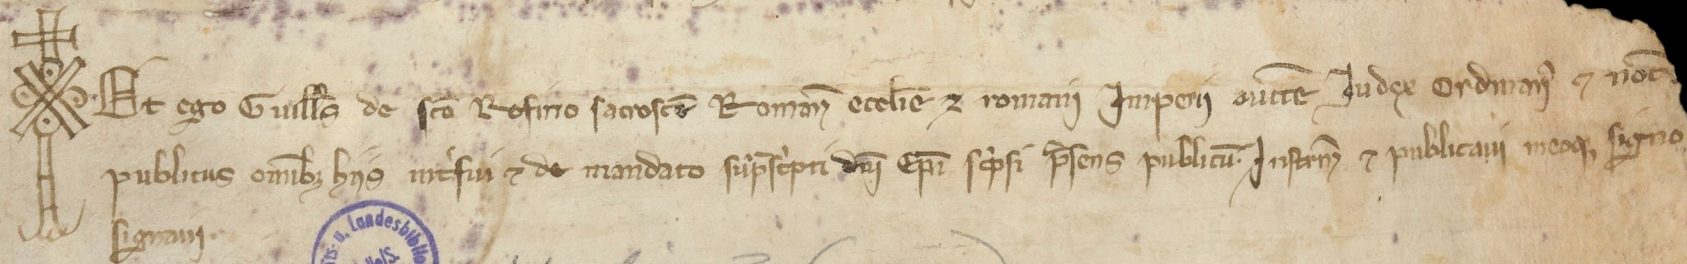 Et ego Guill's de sc̄o Rofino sacrosc̄e Roman̄ eccl'ie & romani Imperij auct̄te Iudex Ordinari' & not̄
publicus omīb; hijs int'fui & de mandato sup̄sc'pti dn̄i Ep̄i sc'psi p̄sens publicū Instrm̄ & publicavi meoq; signo
signavi.
u. Landesbiblio